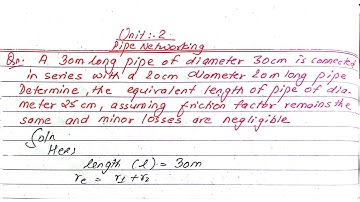 Unit:-2
Pipe Networking
Qn. A 30m long pipe of diameter 30cm is connected
in series with a 20cm diameter 20m long pipe
Determine, the equivalent length of pipe of dia-
meter 25cm, assuming friction factor remains the
same and minor losses are negligible
Soln
Here,
length (l) = 30m
re = r1 + r2